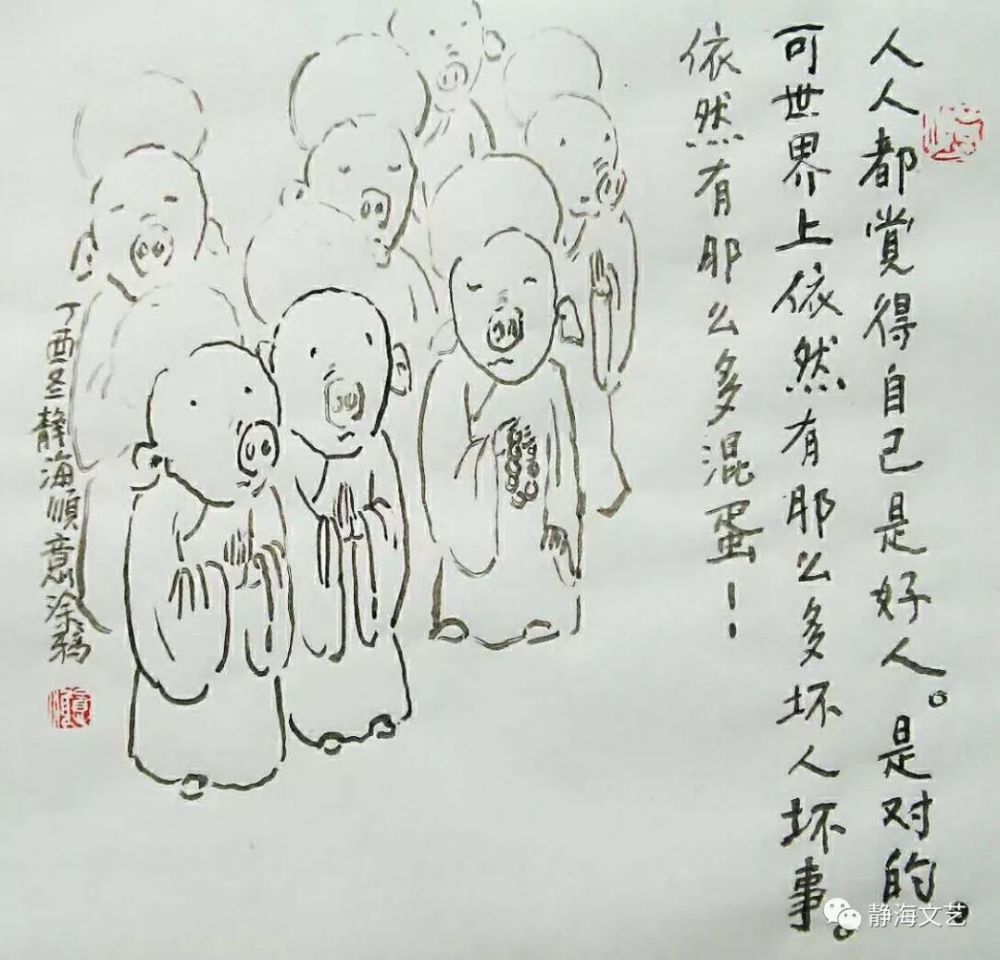 人人都觉得自己是好人。是对的。
可世界上依然有那么多坏人坏事。
依然有那么多混蛋！
丁酉冬静海顺意涂鸦
静海文艺